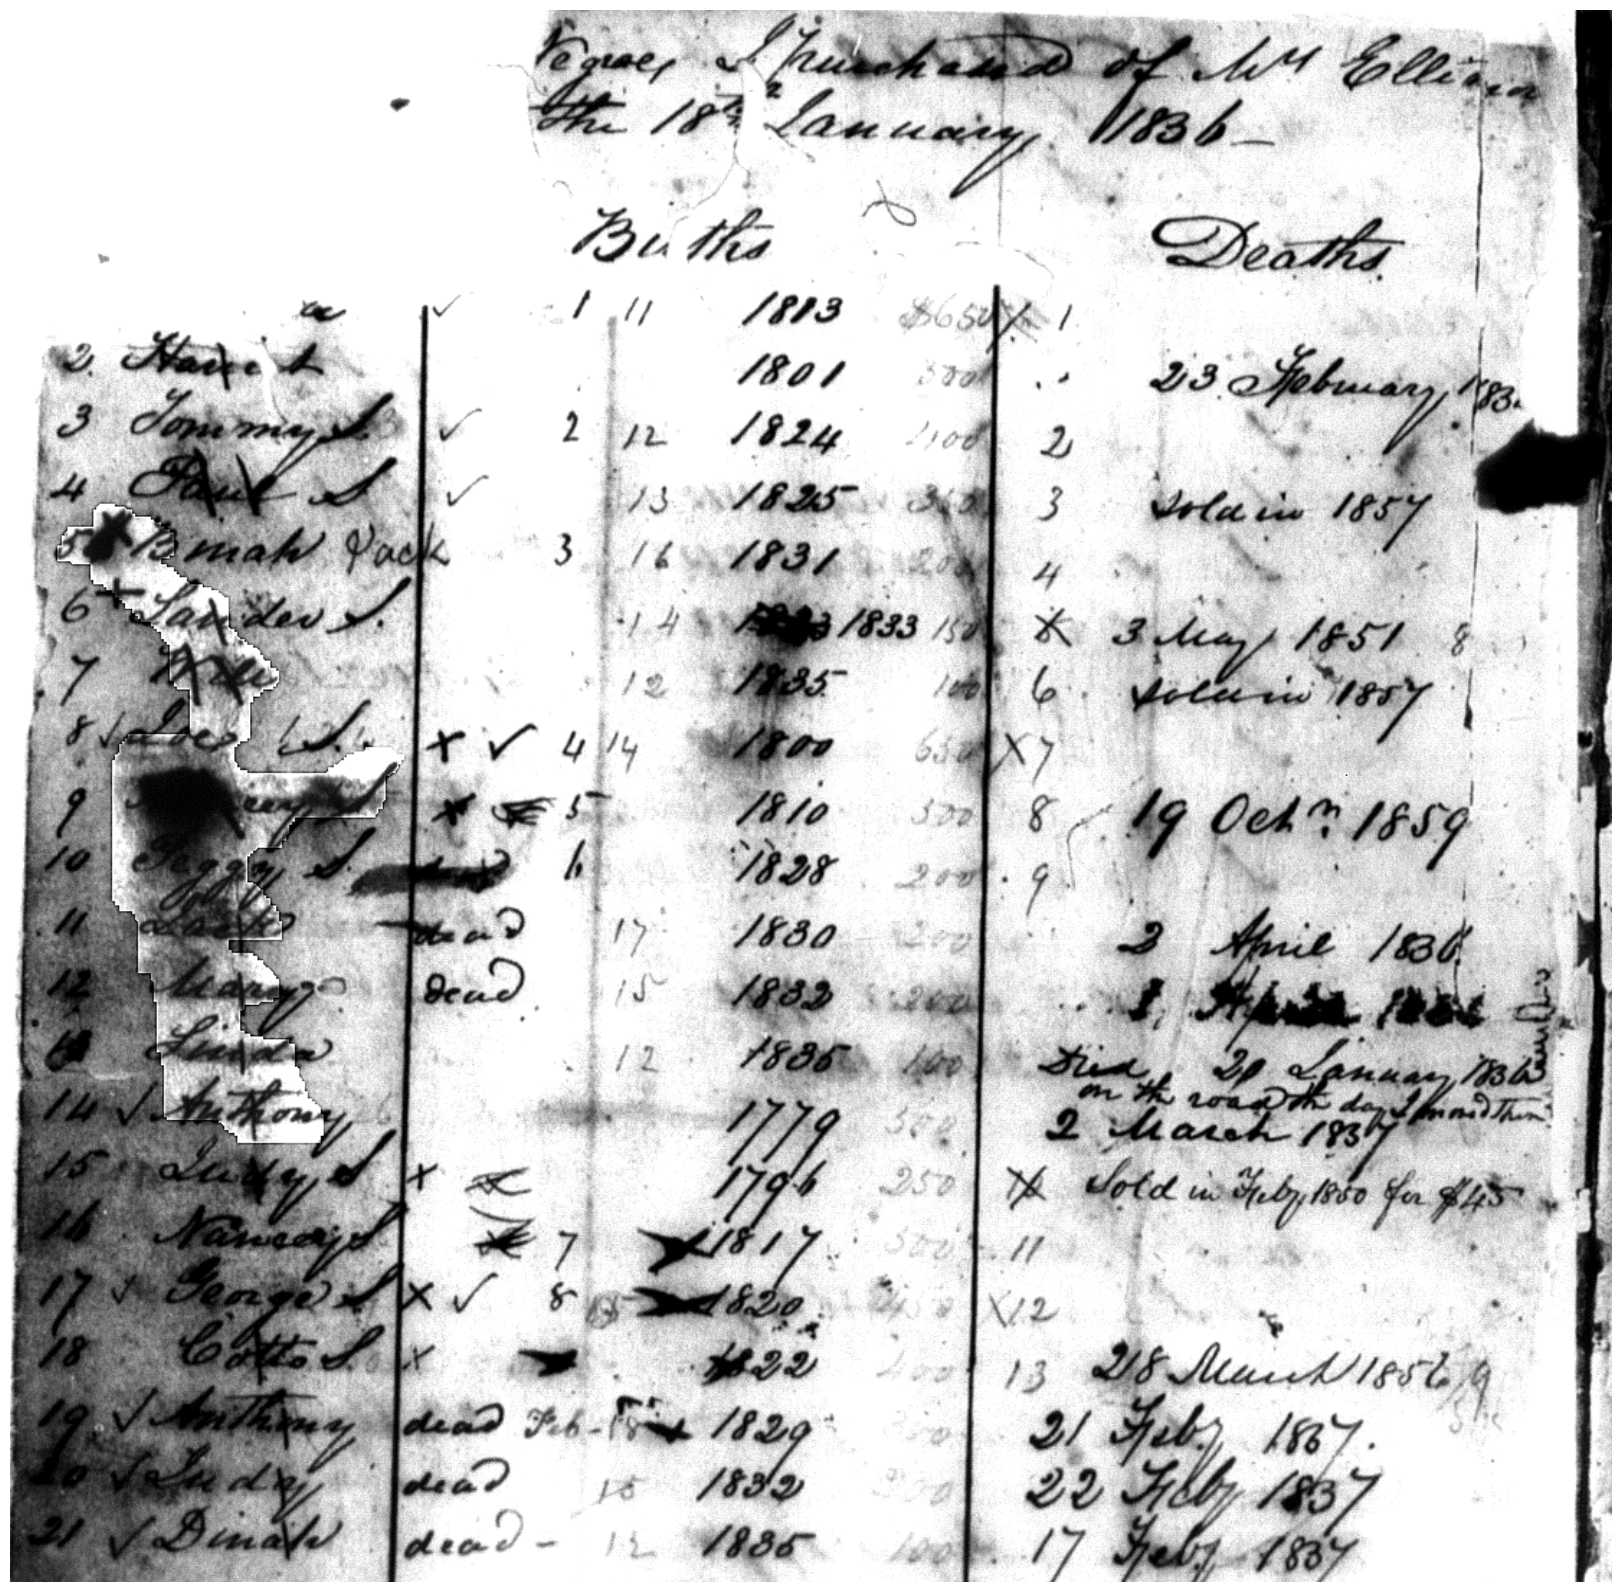 Negroes I purchased of Mr
the 18th January 1836 -
Births Deaths.
✓ 1 11 1813 $650 1
2. 1801 500 23 February
3 Tommy S. ✓ 2 12 1824 2
4 Paul S ✓ 13 1825 3 sold in 1857
5 Binah Jack 3 16 1831 200 4
6 + Sander S. 14 1833 150 3 May 1851 8
7 12 1835 100 6 sold in 1857
8 ✓ S. x ✓ 4 14 1800 650 X 7
9 S x 5 1810 500 8 19 Octr. 1859
10 Peggy S. 6 1828 200 9
11 Jack dead 17 1830 200 2 April 1836
12 Mary dead 15 1832 200
Linda 12 1835 100 Died 20 January 1836
on the road the day I moved them
14 ✓ Anthony 1779 500 2 March 1837
15 Judy S x 1796 250 Sold in Feby 1850 for $45
16 Nancy S 7 1817 500 11
17 ✓ George S x ✓ 8 1820 X 12
18 Cotto S. x 1822 400 13 28 March 1856 9
19 ✓ Anthony dead Feb - 1829 21 Feby 1837.
20 ✓ Judy dead 15 1832 200 22 Feby 1837
21 ✓ Dinah dead - 12 1835 100 17 Feby 1837